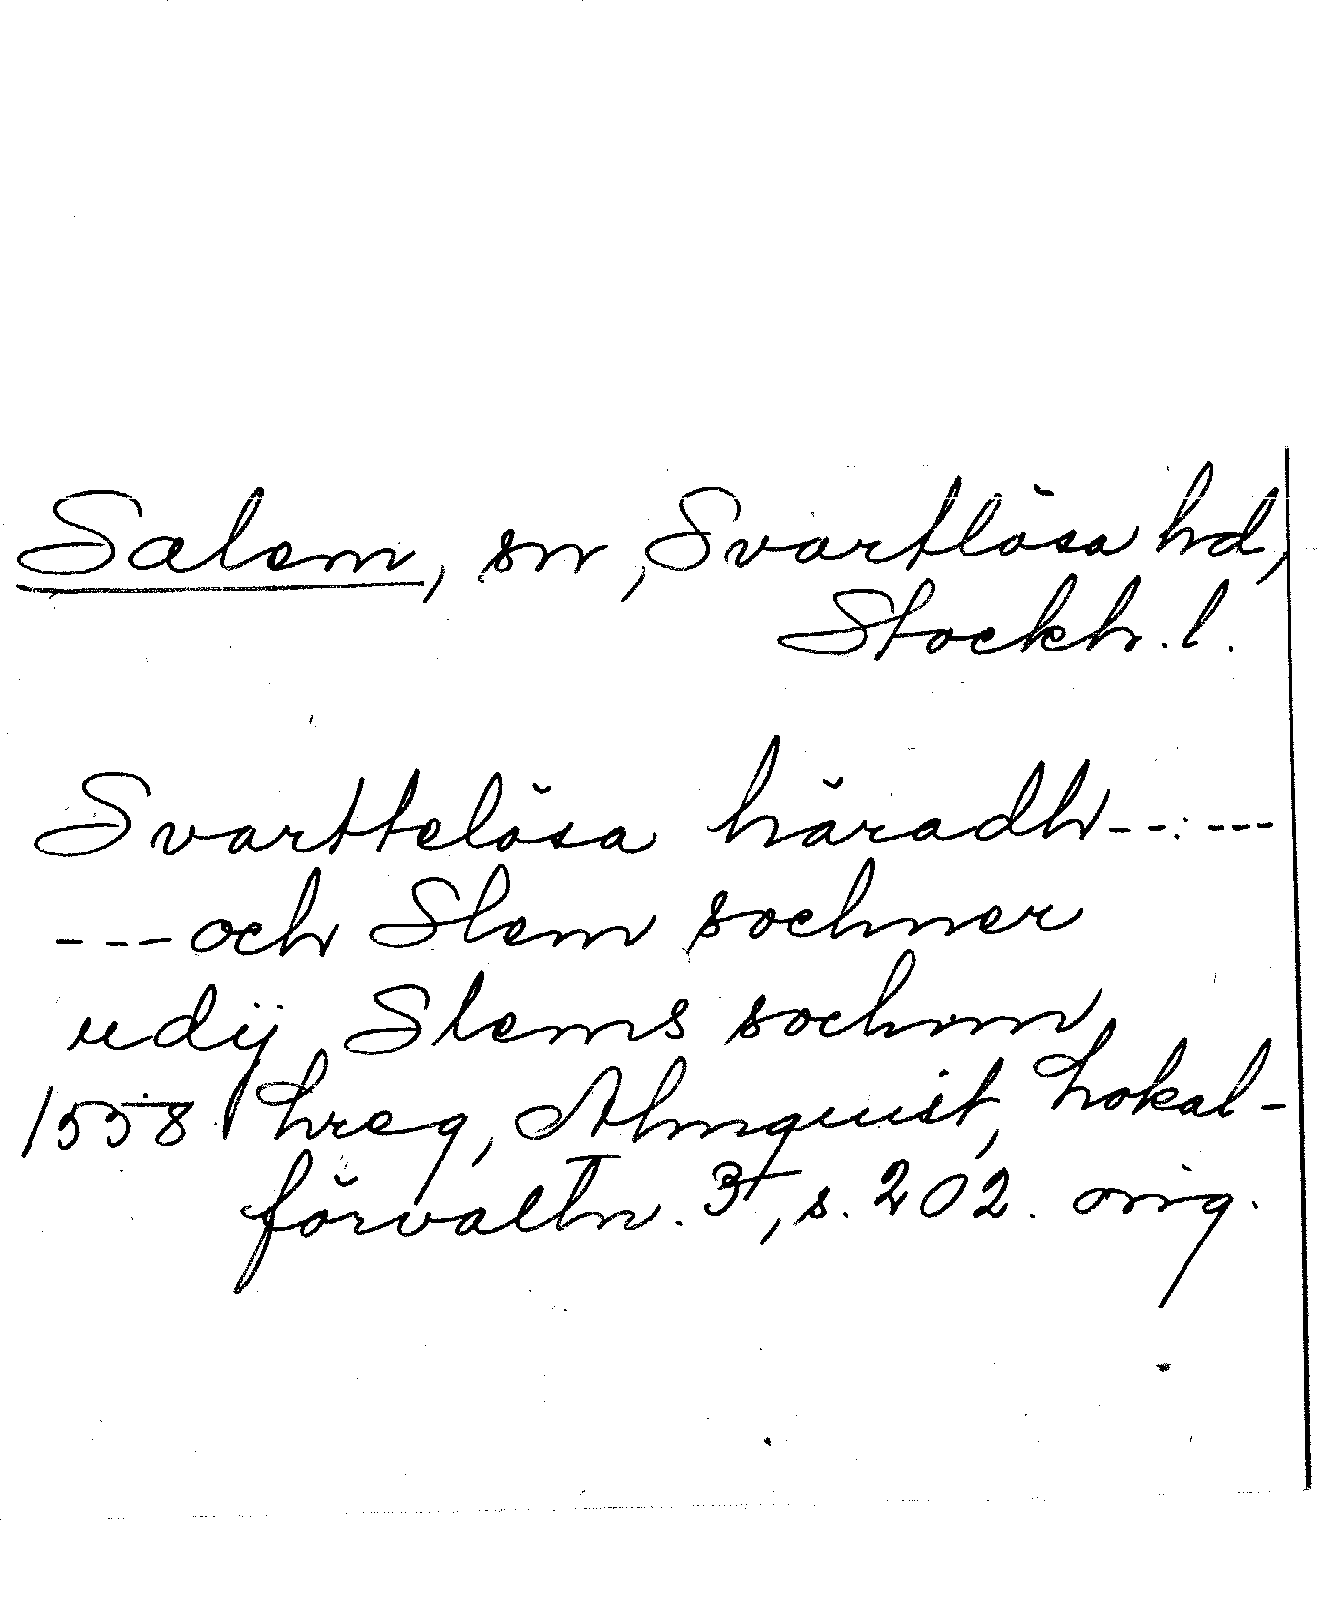 Salem, sn, Svartlösa hd,
Stockh. l.
Svarttelösa häradh -- : ---
--- och Slem sochner
udij Slems sochnn
1558 hreg, Almquist, Lokal-
förvaltn. 3, s. 202. orig.